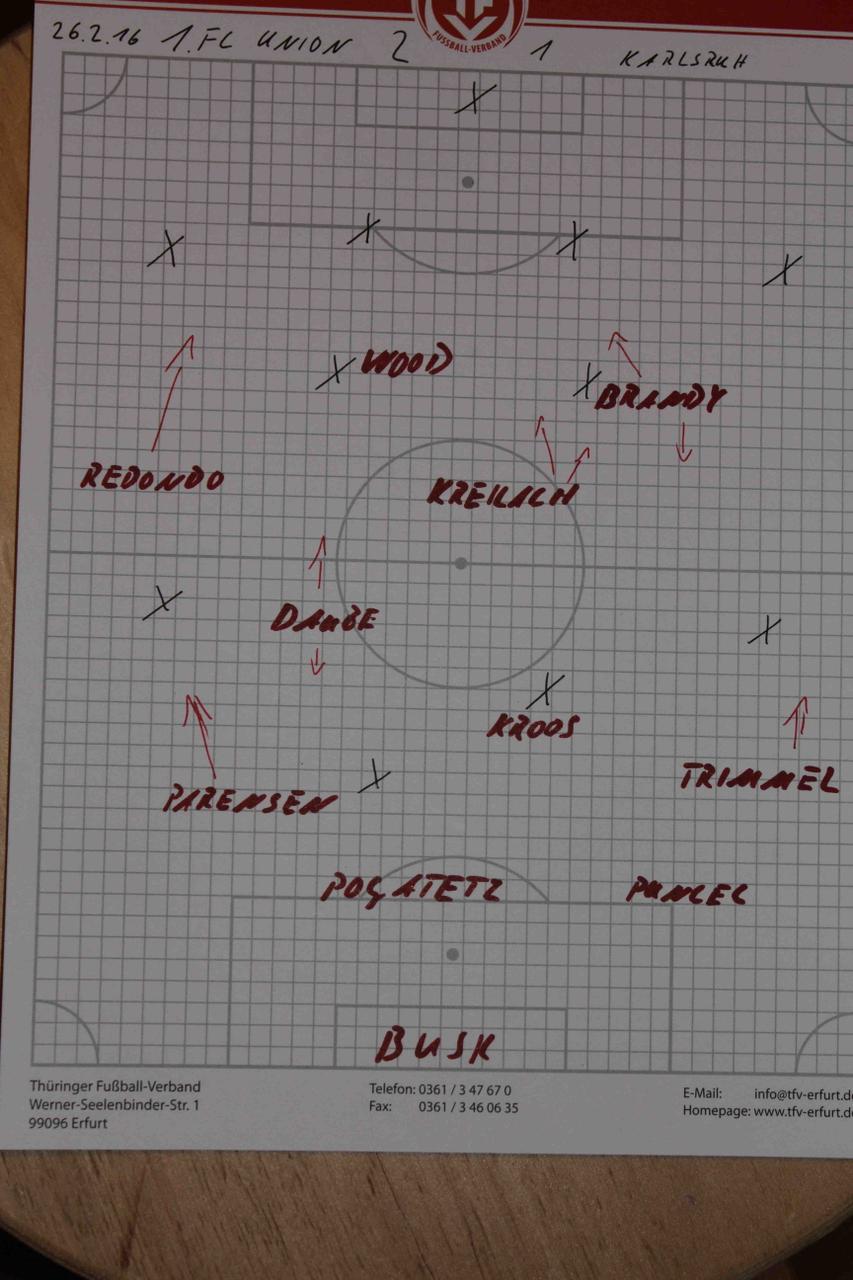 FUSSBALL-VERBAND
26.2.16 1.FC UNION 2 1 KARLSRUH
WOOD
BRANDY
REDONDO
KREILACH
DAUBE
KROOS
TRIMMEL
PARENSEN
POGATETZ PUNCEC
BUSK
Thüringer Fußball-Verband
Werner-Seelenbinder-Str. 1
99096 Erfurt
Telefon: 0361 / 3 47 67 0
Fax: 0361 / 3 46 06 35
E-Mail: info@tfv-erfurt.de
Homepage: www.tfv-erfurt.d